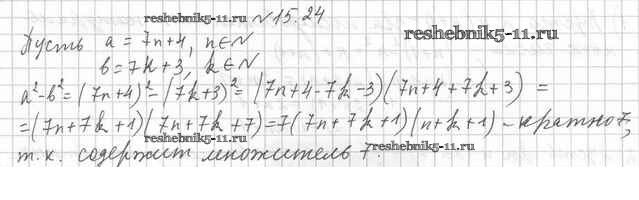 reshebnik5-11.ru №15.24
Пусть a = 7n+4, n∈N reshebnik5-11.ru
b = 7k+3, k∈N
a²-b² = (7n+4)² - (7k+3)² = (7n+4-7k-3)(7n+4+7k+3) =
= (7n+7k+1)(7n+7k+7) = 7(7n+7k+1)(n+k+1) - кратно 7,
reshebnik5-11.ru
т.к. содержит множитель 7.
reshebnik5-11.ru